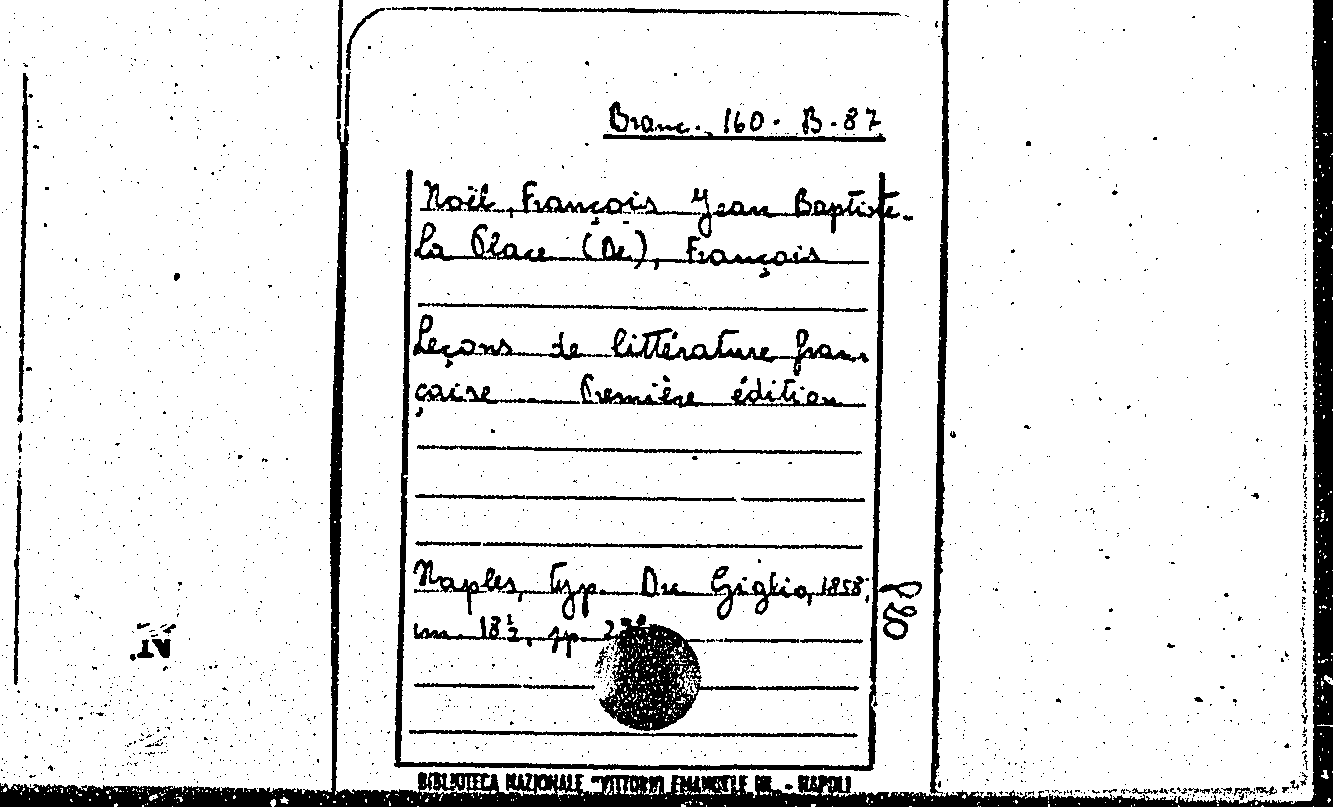 Branc. 160. B. 87
Noël, François Jean Baptiste.
La Place (De), François
Leçons de littérature fran
çaise .. Première édition
Naples, typ. Du Giglio, 1858,
in. 18½. pp.
BIBLIOTECA NAZIONALE "VITTORIO EMANUELE III. - NAPOLI